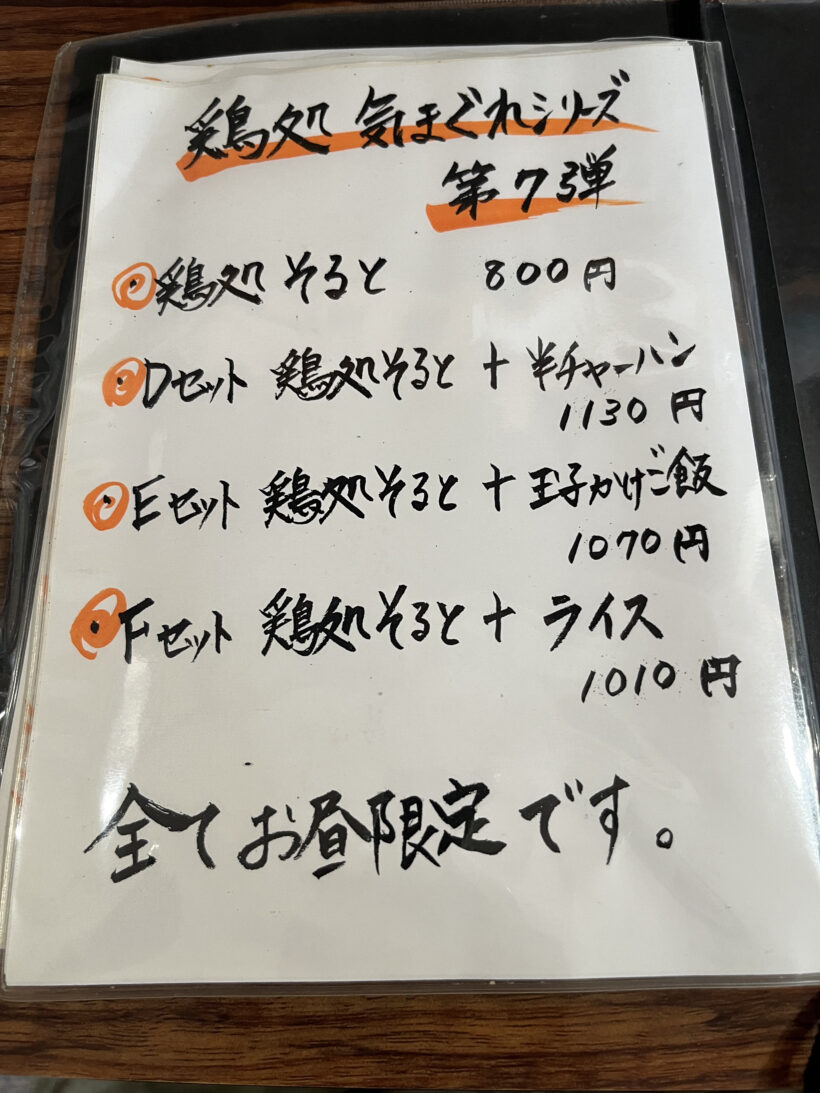 鶏処 気まぐれシリーズ
第7弾
鶏処 そると 800円
Dセット 鶏処そると + 半チャーハン
1130円
Eセット 鶏処そると + 玉子かけご飯
1070円
Fセット 鶏処そると + ライス
1010円
全てお昼限定です。